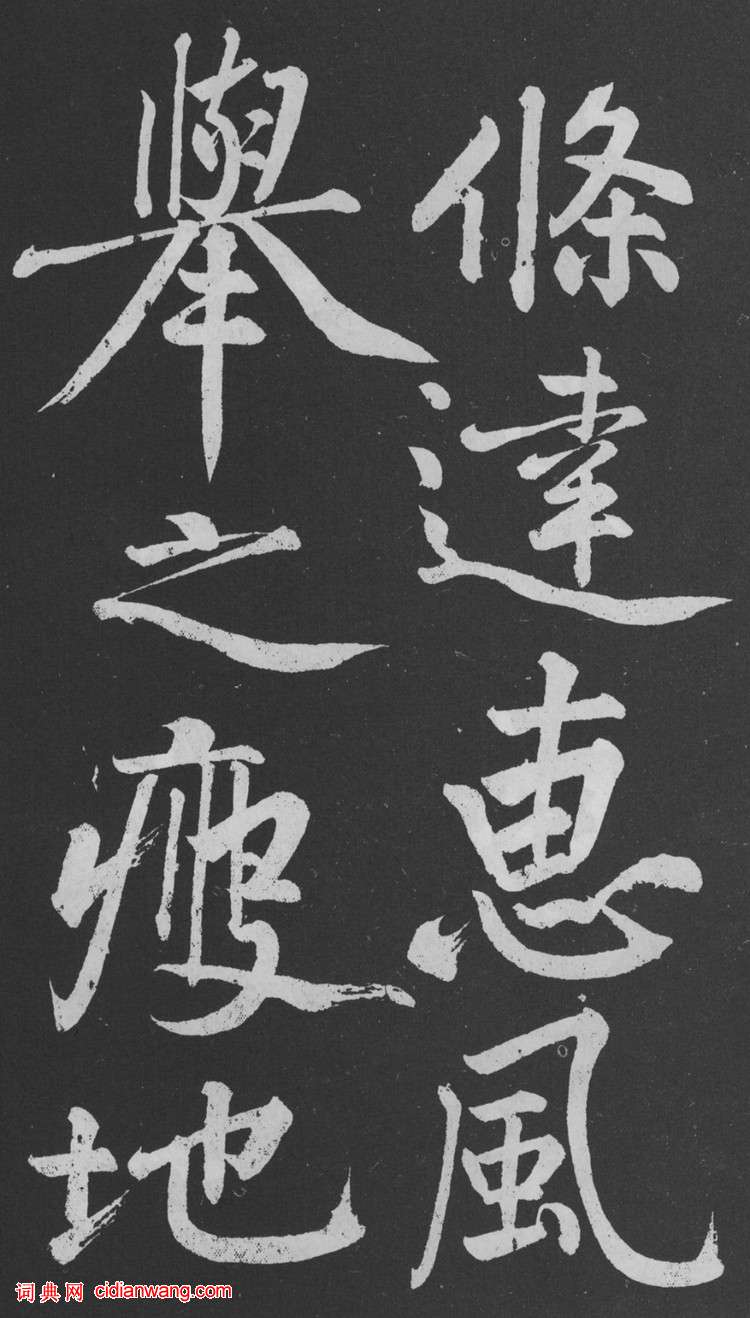 條達惠風
舉之瘦地
词典网 cidianwang.com